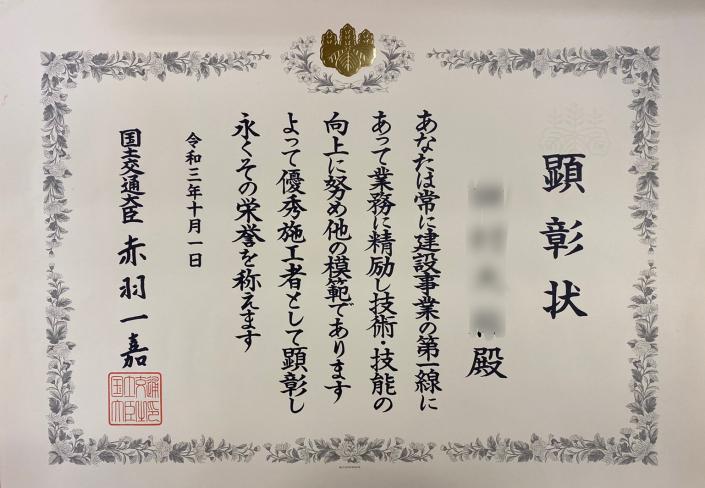 顕彰状
殿
あなたは常に建設事業の第一線に
あって業務に精励し技術・技能の
向上に努め他の模範であります
よって優秀施工者として顕彰し
永くその栄誉を称えます
令和三年十月一日
国土交通大臣 赤羽一嘉
国土交通大臣之印